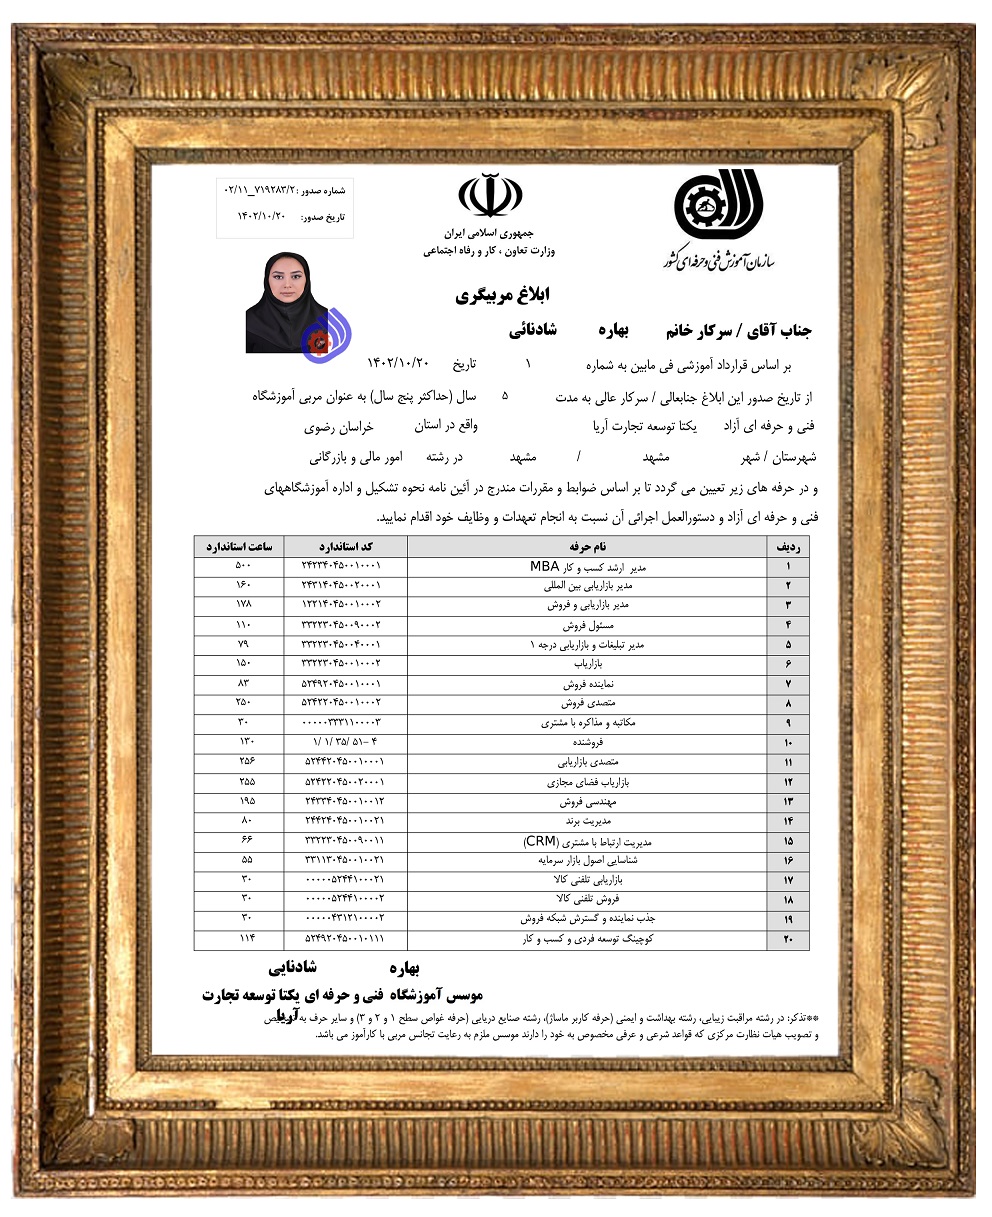 شماره صدور : ۰۲/۱۱_۷۱۹۲۸۳/۲
تاریخ صدور: ۱۴۰۲/۱۰/۲۰
جمهوری اسلامی ایران
وزارت تعاون ، کار و رفاه اجتماعی
سازمان آموزش فنی و حرفه ای کشور
ابلاغ مربیگری
جناب آقای / سرکار خانم بهاره شادنائی
بر اساس قرارداد آموزشی فی مابین به شماره ۱ تاریخ ۱۴۰۲/۱۰/۲۰
از تاریخ صدور این ابلاغ جنابعالی / سرکار عالی به مدت ۵ سال (حداکثر پنج سال) به عنوان مربی آموزشگاه
فنی و حرفه ای آزاد یکتا توسعه تجارت آریا واقع در استان خراسان رضوی
شهرستان / شهر مشهد / مشهد در رشته امور مالی و بازرگانی
و در حرفه های زیر تعیین می گردد تا بر اساس ضوابط و مقررات مندرج در آئین نامه نحوه تشکیل و اداره آموزشگاههای
فنی و حرفه ای آزاد و دستورالعمل اجرائی آن نسبت به انجام تعهدات و وظایف خود اقدام نمایید.
ردیف نام حرفه کد استاندارد ساعت استاندارد
۱ مدیر ارشد کسب و کار MBA ۲۴۲۳۴۰۴۵۰۰۱۰۰۰۱ ۵۰۰
۲ مدیر بازاریابی بین المللی ۲۴۳۱۴۰۴۵۰۰۲۰۰۰۱ ۱۶۰
۳ مدیر بازاریابی و فروش ۱۲۲۱۴۰۴۵۰۰۱۰۰۰۲ ۱۷۸
۴ مسئول فروش ۳۳۲۲۳۰۴۵۰۰۹۰۰۰۲ ۱۱۰
۵ مدیر تبلیغات و بازاریابی درجه ۱ ۳۳۲۲۳۰۴۵۰۰۴۰۰۰۱ ۷۹
۶ بازاریاب ۳۳۲۲۳۰۴۵۰۰۱۰۰۰۲ ۱۵۰
۷ نماینده فروش ۵۲۴۹۲۰۴۵۰۰۱۰۰۰۱ ۸۳
۸ متصدی فروش ۵۲۴۲۲۰۴۵۰۰۱۰۰۰۲ ۲۵۰
۹ مکاتبه و مذاکره با مشتری ۰۰۰۰۰۳۳۳۱۱۰۰۰۰۳ ۳۰
۱۰ فروشنده ۴ -۵۱ /۳۵ /۱ /۱ ۱۳۰
۱۱ متصدی بازاریابی ۵۲۴۴۲۰۴۵۰۰۱۰۰۰۱ ۲۵۶
۱۲ بازاریاب فضای مجازی ۵۲۴۲۲۰۴۵۰۰۲۰۰۰۱ ۲۵۵
۱۳ مهندسی فروش ۲۴۳۳۴۰۴۵۰۰۱۰۰۱۲ ۱۹۵
۱۴ مدیریت برند ۲۴۴۲۴۰۴۵۰۰۱۰۰۲۱ ۸۰
۱۵ مدیریت ارتباط با مشتری (CRM) ۳۳۲۲۳۰۴۵۰۰۹۰۰۱۱ ۶۶
۱۶ شناسایی اصول بازار سرمایه ۳۳۱۱۳۰۴۵۰۰۱۰۰۲۱ ۵۵
۱۷ بازاریابی تلفنی کالا ۰۰۰۰۰۵۲۴۴۱۰۰۰۲۱ ۳۰
۱۸ فروش تلفنی کالا ۰۰۰۰۰۵۲۴۴۱۰۰۰۰۲ ۳۰
۱۹ جذب نماینده و گسترش شبکه فروش ۰۰۰۰۰۴۳۱۲۱۰۰۰۰۲ ۳۰
۲۰ کوچینگ توسعه فردی و کسب و کار ۵۲۴۹۲۰۴۵۰۰۱۰۱۱۱ ۱۱۴
بهاره شادنایی
موسس آموزشگاه فنی و حرفه ای یکتا توسعه تجارت
آریا
**تذکر: در رشته مراقبت زیبایی، رشته بهداشت و ایمنی (حرفه کاربر ماساژ)، رشته صنایع دریایی (حرفه غواص سطح ۱ و ۲ و ۳) و سایر حرف به
و تصویب هیات نظارت مرکزی که قواعد شرعی و عرفی مخصوص به خود را دارند موسس ملزم به رعایت تجانس مربی با کارآموز می باشد.